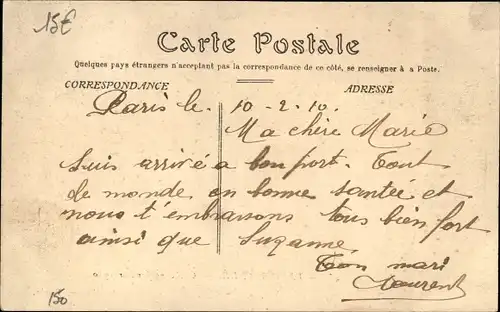 15€
Carte Postale
Quelques pays étrangers n'acceptant pas la correspondance de ce côté, se renseigner à a Poste.
CORRESPONDANCE ADRESSE
Paris le. 10-2-10.
Ma chère Marie
Suis arrivé a bon port. Tout
de monde en bonne santée et
nous t'embrassons tous bien fort
ainsi que Suzanne
Ton mari
Laurent
150